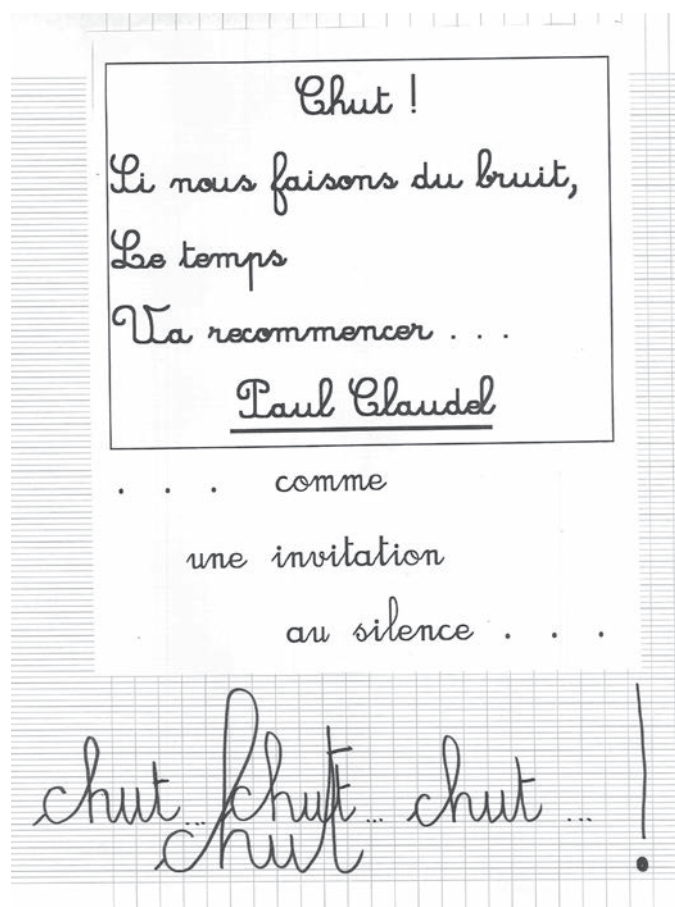 Chut !
Si nous faisons du bruit,
Le temps
Va recommencer . . .
Paul Claudel
. . . comme
une invitation
au silence . . .
chut... chut... chut ... !
chut